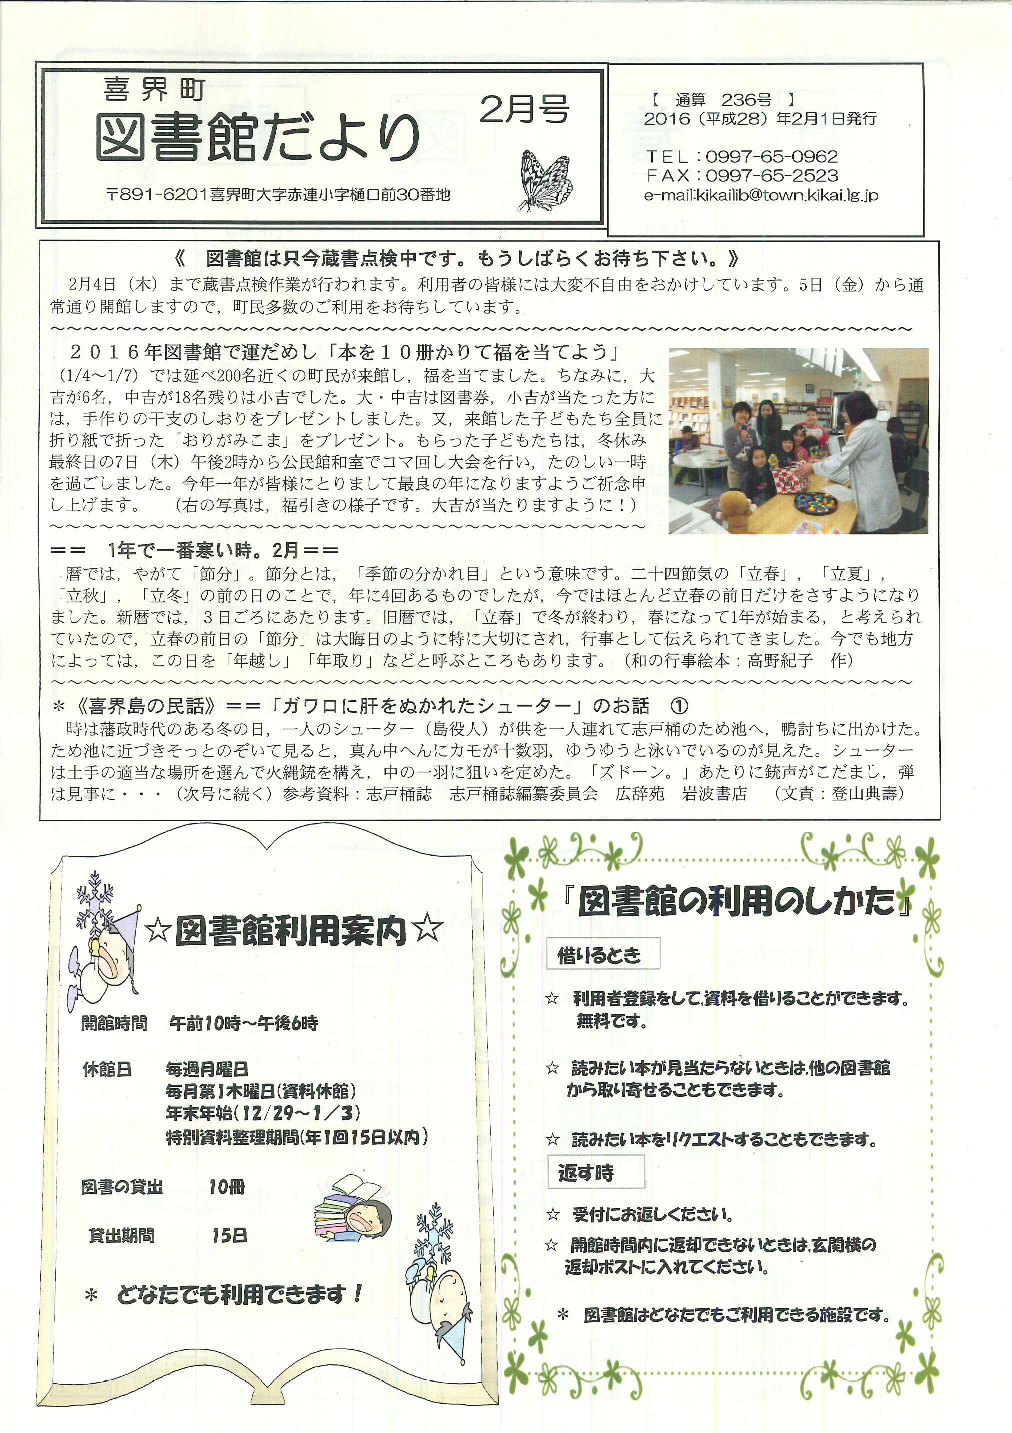 喜界町
図書館だより
2月号
〒891-6201喜界町大字赤連小字樋口前30番地
【　通算　236号　】
2016（平成28）年2月1日発行
ＴＥＬ：0997-65-0962
ＦＡＸ：0997-65-2523
e-mail:kikailib@town.kikai.lg.jp
《　図書館は只今蔵書点検中です。もうしばらくお待ち下さい。》
2月4日（木）まで蔵書点検作業が行われます。利用者の皆様には大変不自由をおかけしています。5日（金）から通
常通り開館しますので，町民多数のご利用をお待ちしています。
～～～～～～～～～～～～～～～～～～～～～～～～～～～～～～～～～～～～～～～～～～～～～～～～～～～～
２０１６年図書館で運だめし「本を１０册かりて福を当てよう」
（1/4～1/7）では延べ200名近くの町民が来館し，福を当てました。ちなみに，大
吉が6名，中吉が18名残りは小吉でした。大・中吉は図書券，小吉が当たった方に
は，手作りの干支のしおりをプレゼントしました。又，来館した子どもたち全員に
折り紙で折った「おりがみこま」をプレゼント。もらった子どもたちは，冬休み
最終日の7日（木）午後2時から公民館和室でコマ回し大会を行い，たのしい一時
を過ごしました。今年一年が皆様にとりまして最良の年になりますようご祈念申
し上げます。　（右の写真は，福引きの様子です。大吉が当たりますように！）
～～～～～～～～～～～～～～～～～～～～～～～～～～～～～～～～～～～～
＝＝　1年で一番寒い時。2月＝＝
暦では，やがて「節分」。節分とは，「季節の分かれ目」という意味です。二十四節気の「立春」，「立夏」，
「立秋」，「立冬」の前の日のことで，年に4回あるものでしたが，今ではほとんど立春の前日だけをさすようになり
ました。新暦では，３日ごろにあたります。旧暦では，「立春」で冬が終わり，春になって1年が始まる，と考えられ
ていたので，立春の前日の「節分」は大晦日のように特に大切にされ，行事として伝えられてきました。今でも地方
によっては，この日を「年越し」「年取り」などと呼ぶところもあります。（和の行事絵本：高野紀子　作）
～～～～～～～～～～～～～～～～～～～～～～～～～～～～～～～～～～～～～～～～～～～～～～～～～～～～
＊《喜界島の民話》＝＝「ガワロに肝をぬかれたシューター」のお話　①
時は藩政時代のある冬の日，一人のシューター（島役人）が供を一人連れて志戸桶のため池へ，鴨討ちに出かけた。
ため池に近づきそっとのぞいて見ると，真ん中へんにカモが十数羽，ゆうゆうと泳いでいるのが見えた。シューター
は土手の適当な場所を選んで火縄銃を構え，中の一羽に狙いを定めた。「ズドーン。」あたりに銃声がこだまし，弾
は見事に・・・（次号に続く）参考資料：志戸桶誌　志戸桶誌編纂委員会　広辞苑　岩波書店　（文責：登山典壽）
☆図書館利用案内☆
開館時間　午前10時～午後6時
休館日　毎週月曜日
毎月第1木曜日(資料休館)
年末年始(12/29～1／3)
特別資料整理期間(年1回15日以内)
図書の貸出　10冊
貸出期間　15日
＊　どなたでも利用できます！
『図書館の利用のしかた』
借りるとき
☆　利用者登録をして,資料を借りることができます。
無料です。
☆　読みたい本が見当たらないときは,他の図書館
から取り寄せることもできます。
☆　読みたい本をリクエストすることもできます。
返す時
☆　受付にお返しください。
☆　開館時間内に返却できないときは,玄関横の
返却ポストに入れてください。
＊　図書館はどなたでもご利用できる施設です。